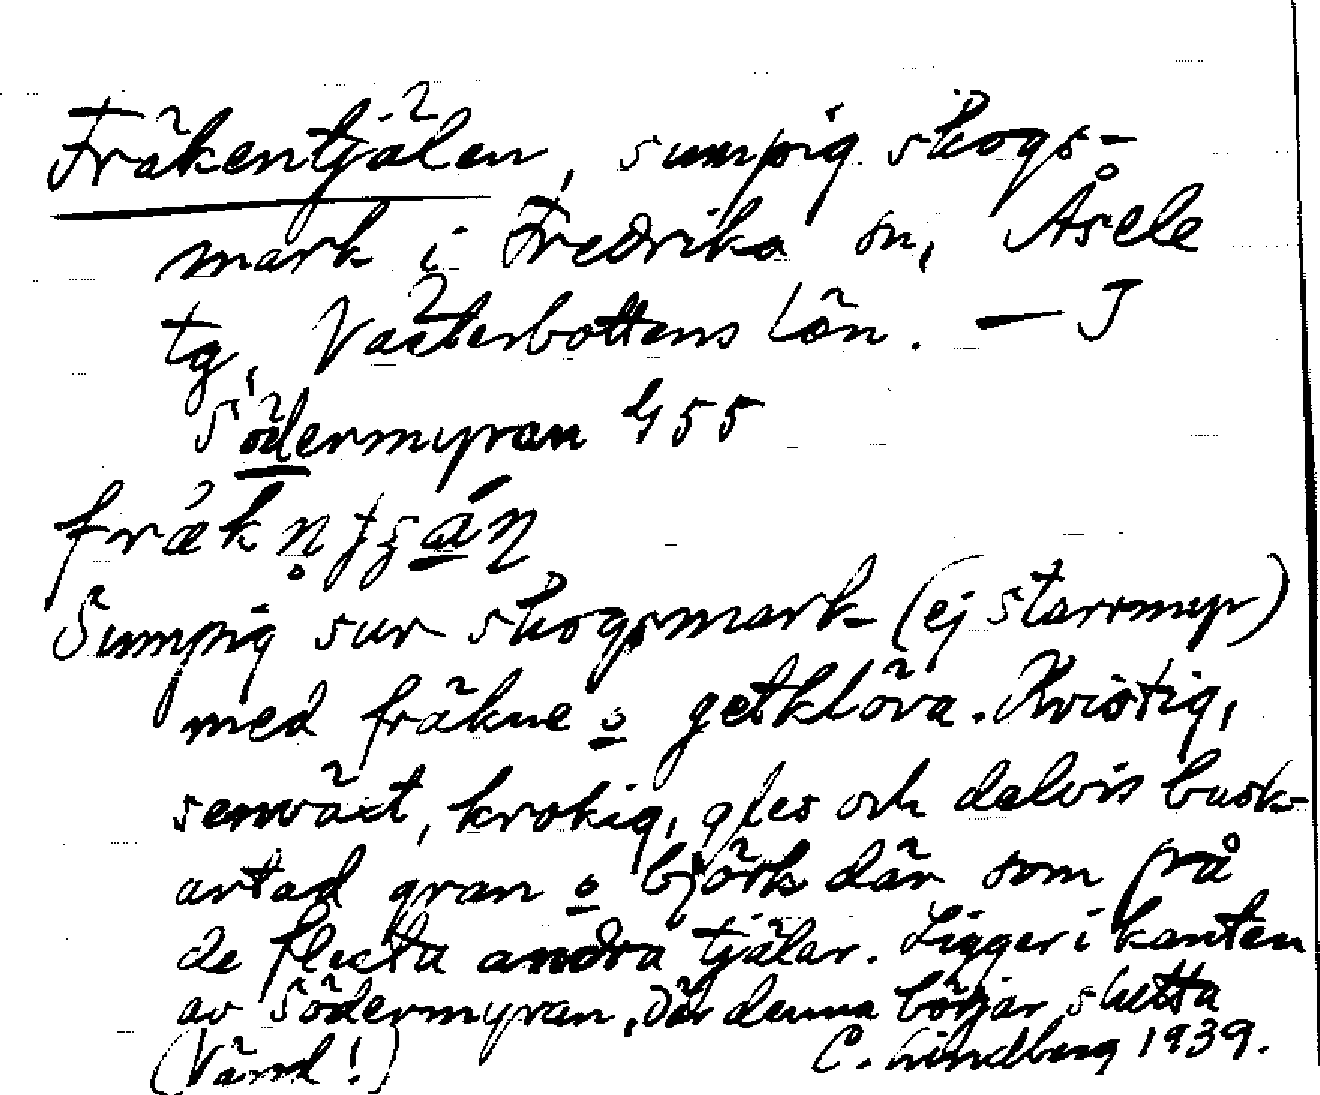 Fräkentjälen, sumpig skogs-
mark i Fredrika sn, Åsele
tg, Västerbottens län. — J
Södermyran 455
Sumpig sur skogsmark (ej starrmyr)
med fräkne o getklöva. Kvistig,
senväxt, krokig, gles och delvis busk-
artad gran o björk där som på
de flesta andra tjälar. Ligger i kanten
av Södermyran, där denna börjar slutta
(Vänd!) C. Lindberg 1939.